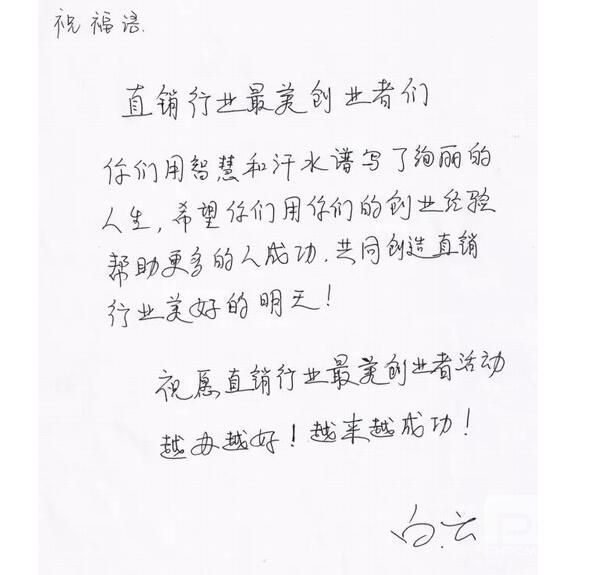 祝福语.
直销行业最美创业者们
你们用智慧和汗水谱写了绚丽的
人生,希望你们用你们的创业经验
帮助更多的人成功.共同创造直销
行业美好的明天!
祝愿直销行业最美创业者活动
越办越好!越来越成功!
白云